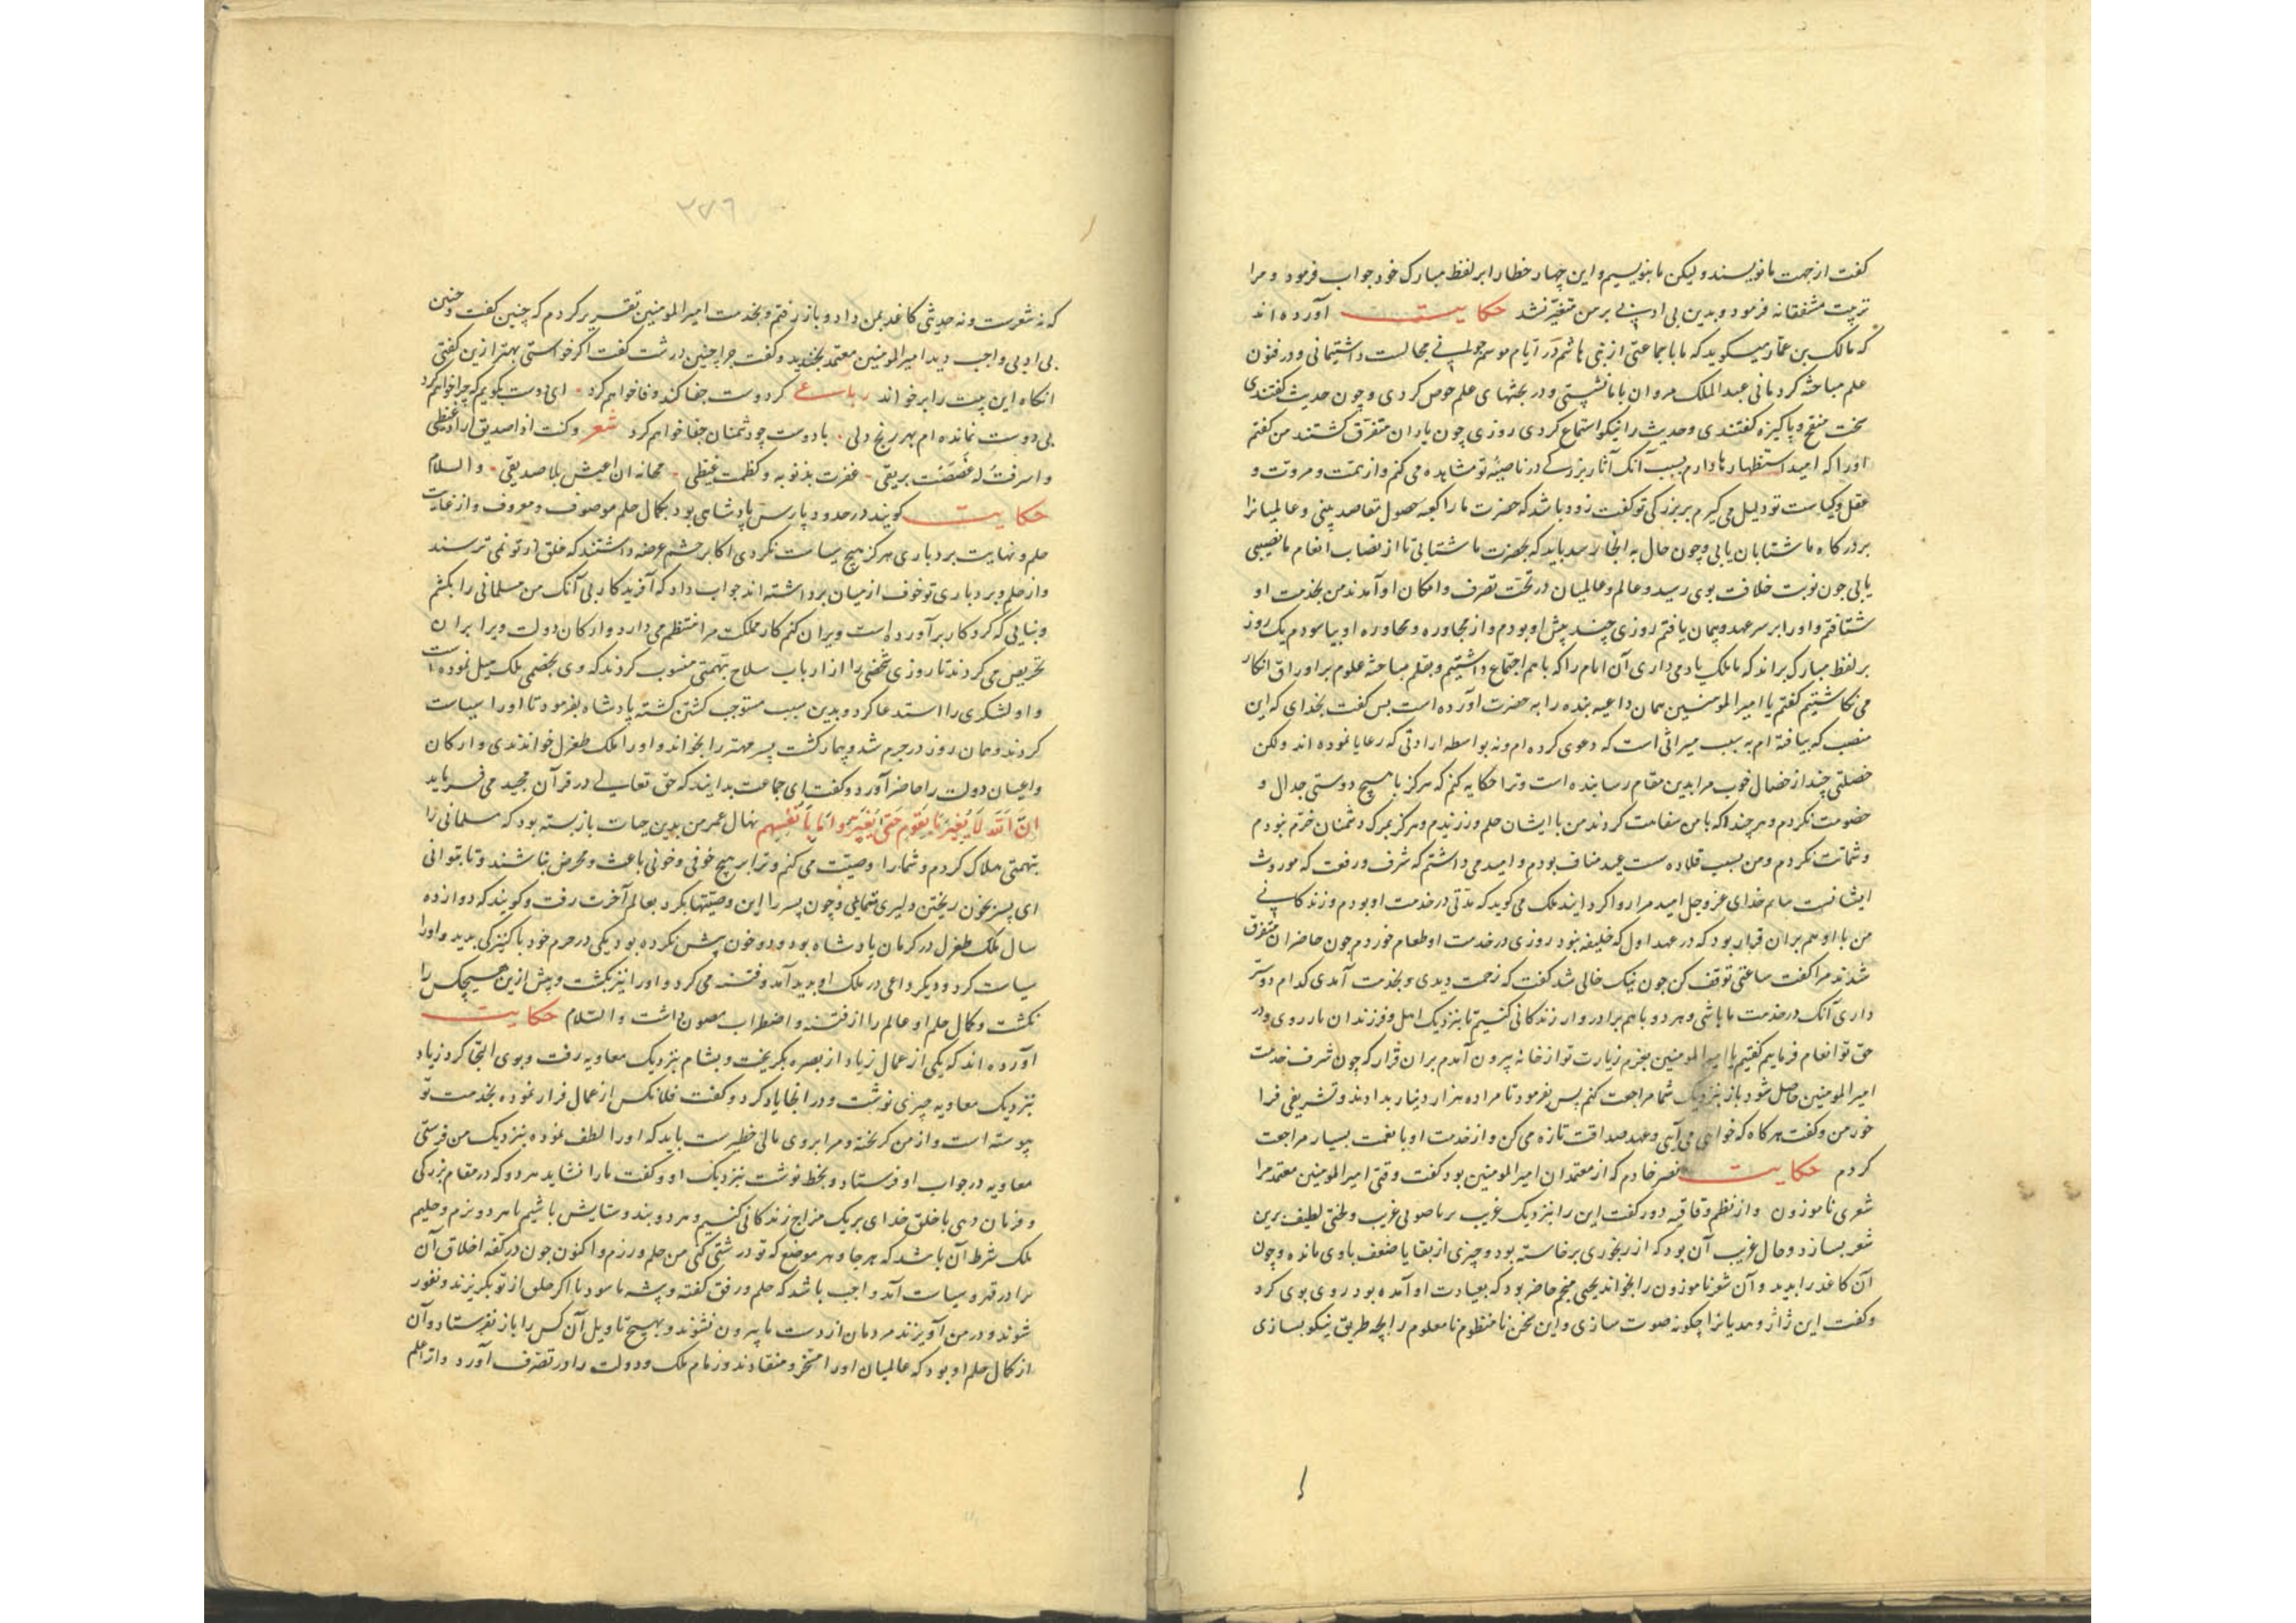 گفت از جهت ما نویسند ولیکن ما بنویسیم و این چهار خطا را بر لفظ مبارک خود جواب فرمود و مرا
تربیت مشفقانه فرمود و بدین بی ادبی بر من متغیر نشد حکایت آورده اند
که مالک بن عمار میگوید که ما با جماعتی از بنی هاشم در ایام موسم حج مجالست داشتیمانی و در فنون
علم مباحثه کردمانی عبد الملک مروان با ما نشستی و در بحثهای علم خوض کردی و چون حدیث گفتندی
سخت منقح و پاکیزه گفتندی و حدیث را نیکو استماع کردی روزی چون یاران متفرق گشتند من گفتم
اورا که امید استظهارها دارم بسبب آنک آثار بزرگی در ناصیه تو مشاهده می کنم و از همت و مروت و
عقل و کیاست تو دلیل می گیرم بر بزرگی تو گفت زود باشد که حضرت ما را کعبه حصول مقاصد بینی و عالمیانرا
بر درگاه ما شتابان یابی و چون حال به انجا رسد باید که بحضرت ما شتابی تا از نصاب انعام ما نصیبی
یابی چون نوبت خلافت بوی رسید و عالم و عالمیان در تحت تصرف و امکان او آمدند من بخدمت او
شتافتم و اورا بر سر عهد و پیمان یافتم روزی چند پیش او بودم و از مجاوره و محاوره او بیاسودم یک روز
بر لفظ مبارک براند که یا ملک یاد می داری آن ایام را که با هم اجتماع داشتیم و بقلم مباحثه علوم بر اوراق افکار
می نگاشتیم گفتم یا امیر المومنین همان داعیه بنده را به حضرت آورده است پس گفت بخدای که این
منصب که یافته ام به سبب میراثی است که دعوی کرده ام و نه بواسطه ارادتی که رعایا نموده اند ولکن
خصلتی چند از خصال خوب مرا بدین مقام رسانیده است و ترا حکایه کنم که هرگز با هیچ دوستی جدال و
خصومت نکردم و هر چند که با من سفاهت کردند من با ایشان حلم ورزیدم و هرگز بمرگ دشمنان خرم نبودم
و شماتت نکردم و من بسبب قلاده عبد مناف بودم و امید می داشتم که شرف و رفعت که موروث
ایشانست بیابم خدای عز و جل امید مرا روا کرد ایند ملک می گوید که مدتی در خدمت او بودم و زندگانی
من با او هم بران قرار بود که در عهد اول که خلیفه نبود روزی در خدمت او طعام خوردم چون حاضران متفرق
شدند مرا گفت ساعتی توقف کن چون نیک خالی شد گفت که زحمت دیدی و بخدمت آمدی کدام دوستر
داری آنک در خدمت ما باشی و هر دو با هم برادروار زندگانی کنیم تا بنزدیک اهل و فرزندان باز روی و در
حق تو انعام فرمایم گفتم یا امیر المومنین بعزم زیارت تو از خانه بیرون آمدم بران قرار که چون شرف خدمت
امیر المومنین حاصل شود باز بنزدیک شما مراجعت کنم پس بفرمود تا مرا ده هزار دینار بدادند و تشریفی فرا
خور من و گفت هر گاه که خواهی می آیی و عهد صداقت تازه می کن و از خدمت او با نعمت بسیار مراجعت
کردم حکایت نصر خادم که از معتمدان امیر المومنین بود گفت وقتی امیر المومنین معتمد مرا
شعری ناموزون و از نظم و قافیه دور گفت این را بنزدیک غریب بر تا صوتی غریب و لحنی لطیف برین
شعر بسازد و حال غریب آن بود که از رنجوری برخاسته بود و چیزی از بقایا ضعف با وی مانده و چون
آن کاغد را بدید و آن شعر ناموزون را بخواند یحیی منجم حاضر بود که بعیادت او آمده بود روی بوی کرد
و گفت این ژاژ و هدیانرا چگونه صوت سازی و این سخن نامنظوم نامعلوم را بچه طریق نیکو بسازی
۳۷۶
که نه شعرست و نه حدیثی کاغد بمن داد و باز رفتم و بخدمت امیر المومنین تقریر کردم که چنین گفت و چنین
بی ادبی واجب دید امیر المومنین معتمد بخندید و گفت چرا چنین درشت گفت اگر خواستی بهتر ازین گفتی
انگاه این بیت را بر خواند رباعی گر دوست جفا کند وفا خواهم کرد ای دوست بگویم که چرا خواهم کرد
بی دوست نمانده ام بهر رنج دلی با دوست چو دشمنان جفا خواهم کرد شعر وکنت اذا صدیق اراد غیظی
واسرفت له غصصت بریقی غفرت بذنوبه وکظمت غیظی مخافة ان اعیش بلا صدیق والسلام
حکایت گویند در حدود پارس پادشاهی بود بکمال حلم موصوف و معروف و از غایت
حلم و نهایت بردباری هرگز هیچ سیاست نکردی اکابر حشم عرضه داشتند که خلق از تو نمی ترسند
و از حلم و بردباری تو خوف از میان برداشته اند جواب داد که آفریدگار بی آنک من مسلمانی را بکشم
و بنایی که کردگار برآورده است ویران کنم کار مملکت مرا منتظم می دارد و ارکان دولت ویرا بران
تحریض می کردند تا روزی شخصی را از ارباب سلاح بتهمتی منسوب کردند که وی بخصمی ملک میل نموده است
و او لشکری را استدعا کرد و بدین سبب مستوجب کشتن گشته پادشاه بفرمود تا اورا سیاست
کردند و همان روز در حرم شد و بیمار گشت پسر مهتر را بخواند و اورا ملک طغرل خواندندی و ارکان
و اعیان دولت را حاضر آورد و گفت ای جماعت بدانید که حق تعالی در قرآن مجید می فرماید
ان الله لا یغیر ما بقوم حتی یغیروا ما بانفسهم نهال عمر من بدین حیات باز بسته بود که مسلمانی را
بتهمتی هلاک کردم و شما را وصیت می کنم و ترا بر هیچ خوفی و خونی باعث و محرض نباشند و تا بتوانی
ای پسر بخون ریختن دلیری ننمایی و چون پسر را این وصیتها بکرد بعالم آخرت رفت و گویند که دوازده
سال ملک طغرل در کرمان پادشاه بود و دو خون بیش نکرده بود یکی در حرم خود با کنیزکی بدید و اورا
سیاست کرد و دیگر داعی در ملک او پدید آمد و فتنه می کرد و اورا نیز بکشت و بیش ازین هیچکس را
نکشت و کمال حلم او عالم را از فتنه و اضطراب مصون داشت والسلام حکایت
آورده اند که یکی از عمال زیاد از بصره بگریخت و بشام بنزدیک معاویه رفت و بوی التجا کرد زیاد
بنزدیک معاویه چیزی نوشت و در انجا یاد کرد و گفت فلانکس از عمال فرار نموده بخدمت تو
پیوسته است و از من گریخته و مرا بروی مالی خطیرست باید که اورا لطف نموده بنزدیک من فرستی
معاویه در جواب او فرستاد و بخط نوشت بنزدیک او و گفت ما را نشاید هر دو که در مقام بزرگی
و فرمان دهی با خلق خدای بر یک مزاج زندگانی کنیم و هر دو بند و ستایش باشیم یا هر دو نرم و حلیم
ملک شرط آن باشد که هر جا و هر موضع که تو درشتی کنی من حلم ورزم و اکنون چون در کفه اخلاق آن
مرا در قهر و سیاست آمد واجب باشد که حلم و رفق گفته و پیشه ما سود تا اگر خلق از تو بگریزند و نفور
شوند و در من آویزند مردمان از دست ما بیرون نشوند و بهیچ تاویل آن کس را باز نفرستاد و آن
از کمال حلم او بود که عالمیان اورا مسخر و منقادند و زمام ملک و دولت را در تصرف آورد و از اعلم